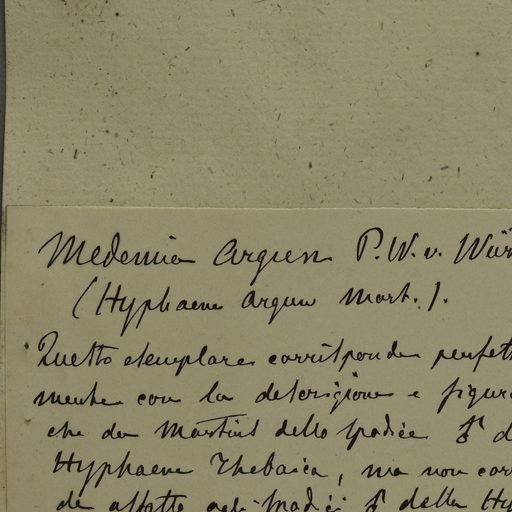 Medemia Argun P. W. v. Wür
(Hyphaene Argun Mart.).
Questo esemplare corrisponde perfet
mente con la descrizione e figura
che da Martius dello spadice ♂ d
Hyphaene Thebaica, ma non cor
de affatto agli spadici ♂ della Hy